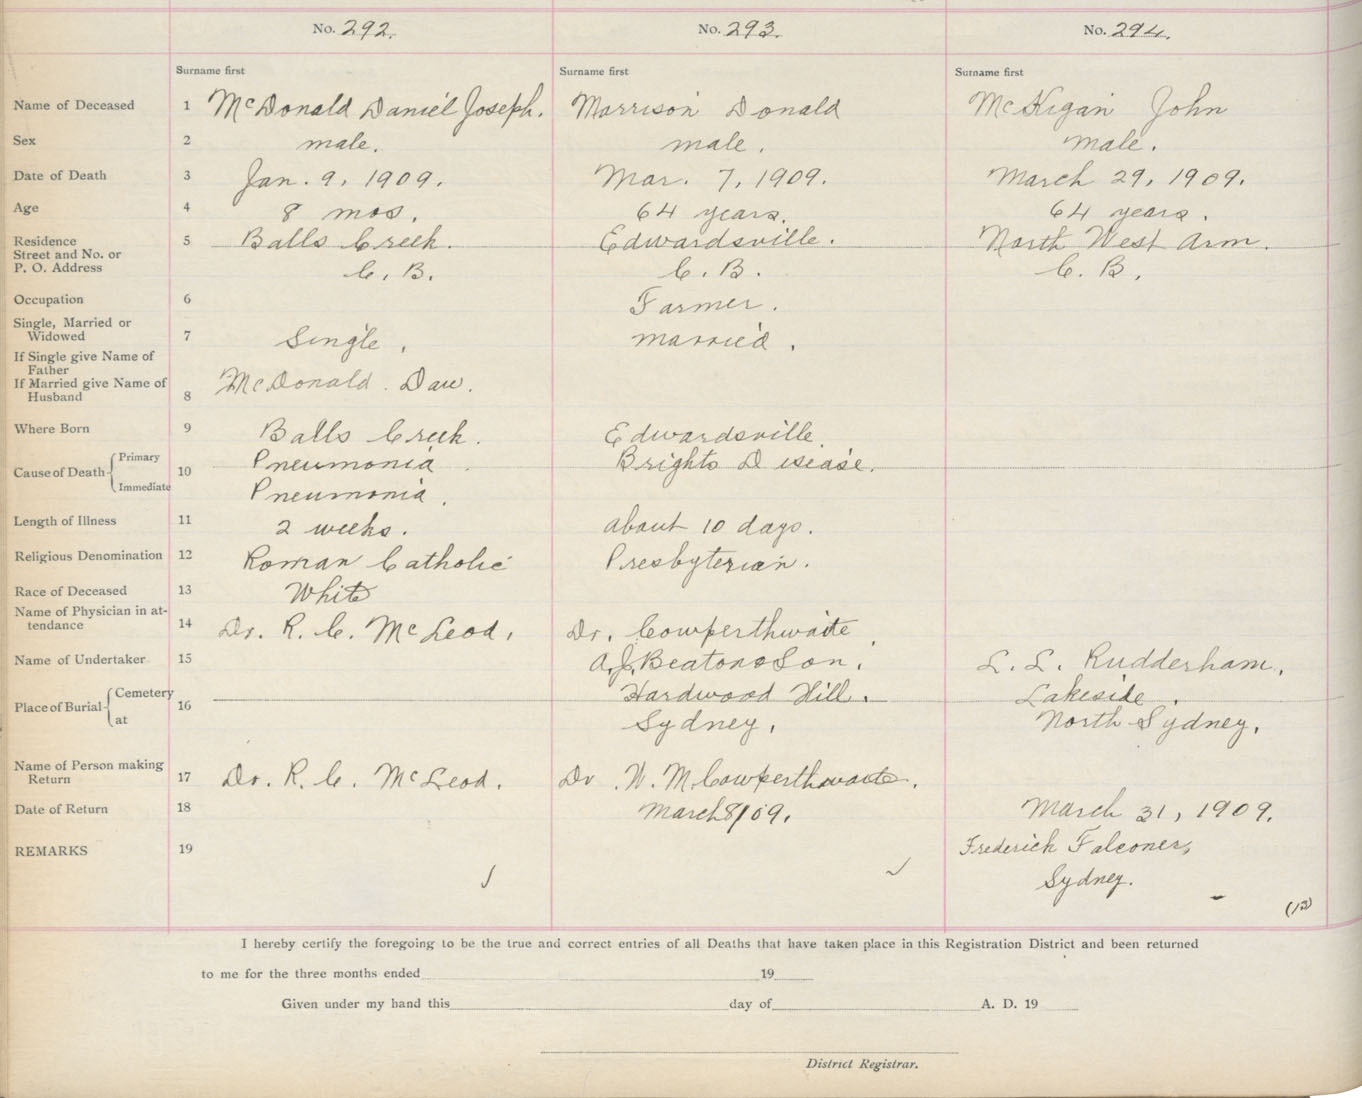 No. 292. No. 293. No. 294.
Surname first Surname first Surname first
Name of Deceased 1 McDonald Daniel Joseph. Morrison Donald McKigan John
Sex 2 male. male. male.
Date of Death 3 Jan. 9, 1909. Mar. 7, 1909. March 29, 1909.
Age 4 8 mos. 64 years. 64 years.
Residence 5 Balls Creek. Edwardsville. North West Arm.
Street and No. or
P. O. Address C. B. C. B. C. B.
Occupation 6 Farmer.
Single, Married or
Widowed 7 Single. married.
If Single give Name of
Father
If Married give Name of McDonald Dan.
Husband 8
Where Born 9 Balls Creek. Edwardsville.
Cause of Death Primary 10 Pneumonia. Brights Disease.
Immediate Pneumonia.
Length of Illness 11 2 weeks. about 10 days.
Religious Denomination 12 Roman Catholic Presbyterian.
Race of Deceased 13 White
Name of Physician in at-
tendance 14 Dr. R. C. McLeod. Dr. Cowperthwaite
Name of Undertaker 15 A. J. Beaton & Son. L. L. Rudderham.
Place of Burial Cemetery 16 Hardwood Hill. Lakeside.
at Sydney. North Sydney.
Name of Person making
Return 17 Dr. R. C. McLeod. Dr. W. M. Cowperthwaite.
Date of Return 18 March 8/09. March 31, 1909.
REMARKS 19 Frederick Falconer,
Sydney.
(12)
I hereby certify the foregoing to be the true and correct entries of all Deaths that have taken place in this Registration District and been returned
to me for the three months ended 19
Given under my hand this day of A. D. 19
District Registrar.